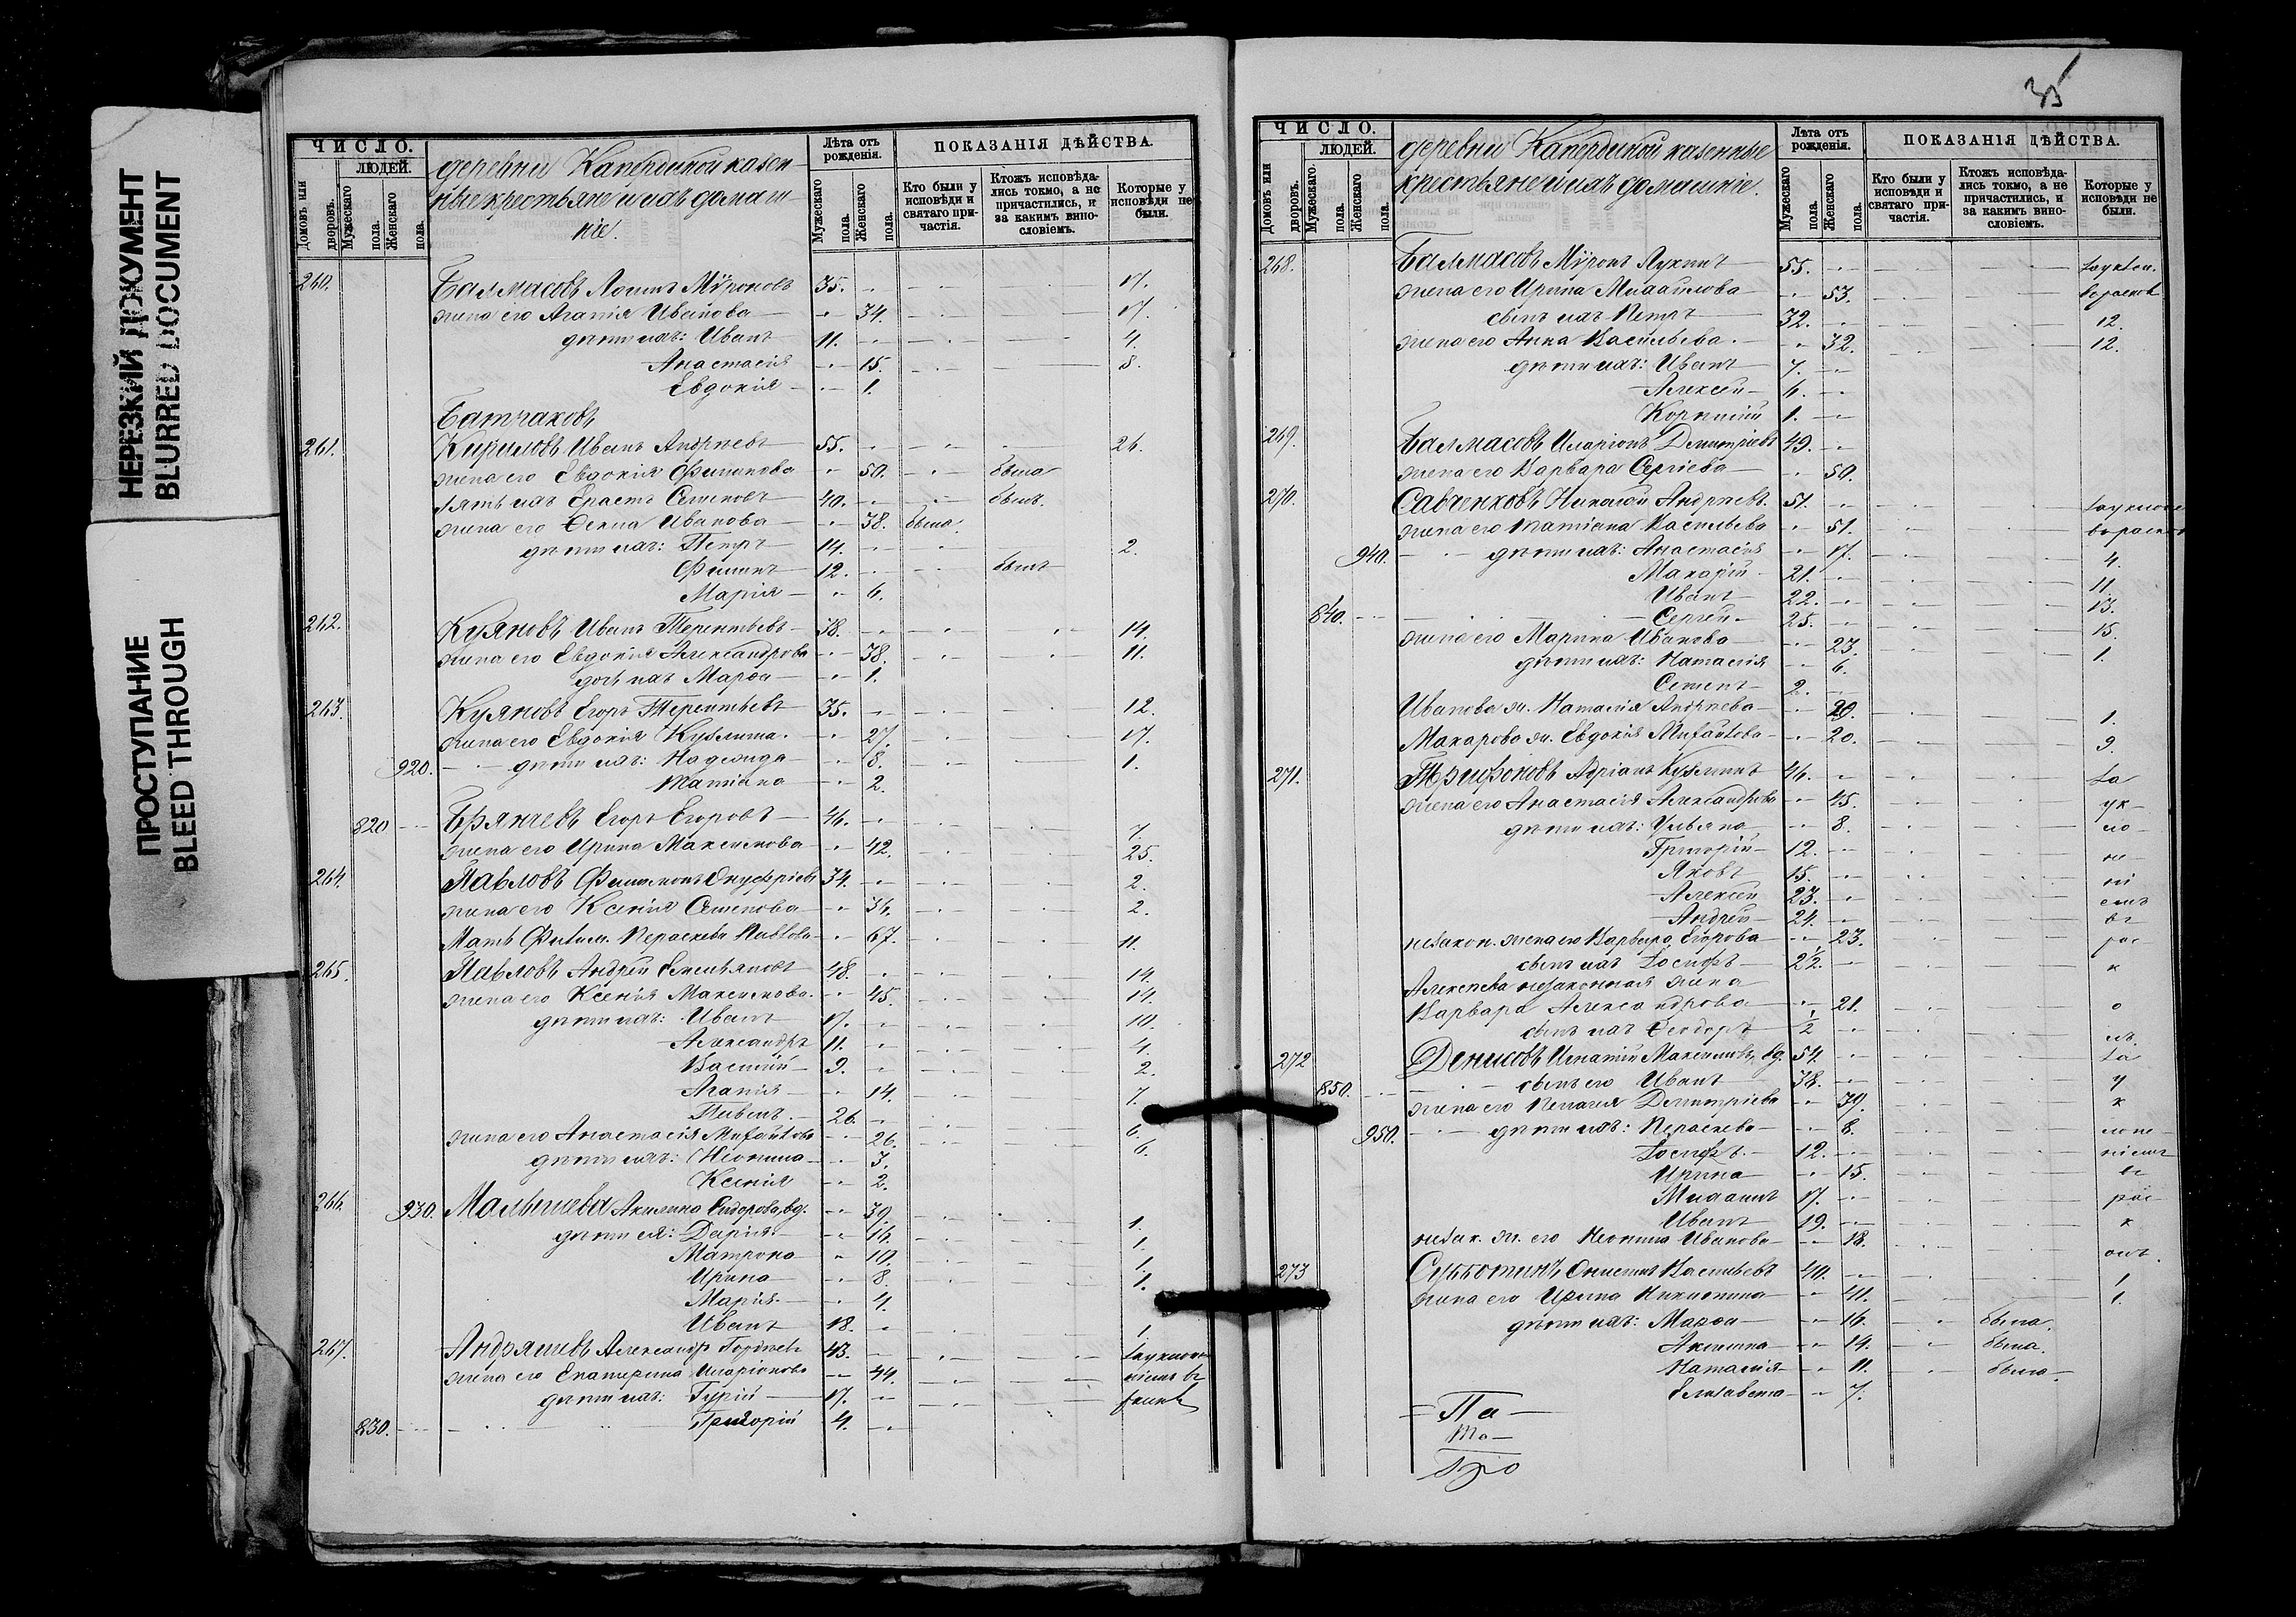 НЕРЕЗКИЙ ДОКУМЕНТ
BLURRED DOCUMENT
ПРОСТУПАНИЕ
BLEED THROUGH
ЧИСЛО.
ЛЮДЕЙ.
Домовъ или дворовъ.
Мужескаго пола.
Женскаго пола.
деревни Капердиной казен-
ные крестьяне и ихъ домаш-
ніе.
Лѣта отъ рожденія.
Мужескаго пола.
Женскаго пола.
ПОКАЗАНІЯ ДѢЙСТВА.
Кто были у исповѣди и святаго при-частія.
Ктожъ исповѣда-лись токмо, а не причастились, и за какимъ вино-словіемъ.
Которые у исповѣди не были.
260. Балмасовъ Логинъ Мѵроновъ 35. 17.
жена его Агапія Иванова 34. 17.
дѣти ихъ: Иванъ 11. 4.
Анастасія 15. 8.
Евдокія 1.
261. Кириловъ Иванъ Андреевъ 55. 26.
жена его Евдокія Филипова 50. была
зять ихъ Ерастъ Семеновъ 40. былъ.
жена его Ѳекла Иванова 38. была.
дѣти ихъ: Петръ 14. 2.
Филипъ 12. былъ
Марія 6.
262. Куяновъ Иванъ Терентьевъ 38. 14.
жена его Евдокія Александрова 38. 11.
дочь ихъ Марѳа 1.
263. Куяновъ Егоръ Терентьевъ 35. 12.
жена его Евдокія Кузьмина. 27. 17.
920. дѣти ихъ: Надежда 8. 1.
Татіана 2.
820 Брянчевъ Егоръ Егоровъ 46. 7.
жена его Ирина Максимова 42. 25.
264. Павловъ Филимонъ Онуфріевъ 34. 2.
жена его Ксенія Семенова 34. 2.
Мать Филим. Пераскева Павлова 67. 11.
265. Павловъ Андрей Емельяновъ 48. 14.
жена его Ксенія Максимова. 45. 14.
дѣти ихъ: Иванъ 17. 10.
Александръ 11. 4.
Василій 9. 2.
Агапія 14. 7.
Павелъ. 26. 6.
жена его Анастасія Михайлова 26. 6.
дѣти ихъ: Неонила 3.
Ксенія 2.
266. 930. Малышева Акилина Сидорова, вд. 39. 1.
дѣти ея: Дарія 16. 1.
Матрона 10. 1.
Ирина 8. 1.
Марія 4.
Иванъ 18. 1.
267. Андряшевъ Александръ 43.
жена его Екатерина Иларіонова 44.
дѣти ихъ: Гурій 17.
830. Григорій 4.
35
ЧИСЛО.
ЛЮДЕЙ.
Домовъ или дворовъ.
Мужескаго пола.
Женскаго пола.
деревни Капердиной казенные
крестьяне и ихъ домашніе.
Лѣта отъ рожденія.
Мужескаго пола.
Женскаго пола.
ПОКАЗАНІЯ ДѢЙСТВА.
Кто были у исповѣди и святаго при-частія.
Ктожъ исповѣда-лись токмо, а не причастились, и за какимъ вино-словіемъ.
Которые у исповѣди не были.
268. Балмасовъ Мѵронъ Лукинъ 55.
жена его Ирина Михайлова 53.
сынъ ихъ Петръ 32. 12.
жена его Анна Васильева. 32. 12.
дѣти ихъ: Иванъ 7.
Алексей 6.
Корнилій 1.
269. Балмасовъ Иларіонъ Димитріевъ 49.
жена его Варвара Сергіева 50.
270. Савченковъ Николай Андреевъ. 51.
жена его Татіана Васильева 51.
940. дѣти ихъ: Анастасія 17. 4.
Макарій 21. 11.
Иванъ 22. 13.
840. Сергей 25. 15.
жена его Марина Иванова 23. 1.
дѣти ихъ: Наталія 6.
Семенъ 2.
Иванова ж. Наталія Андреева 1.
Макарова ж. Евдокія Михайлова 20. 9.
271. Трифоновъ Адріанъ Кузьминъ 46. за
жена его Анастасія Александрова 45. ук-
дѣти ихъ: Ульяна 8. ло-
Григорій 12. не-
Яковъ 15. ні
Алексей 23. емъ
Андрей 24. въ
незакон. жена его Варвара Егорова 23. рас
сынъ ихъ Іосифъ к
Алексеева незаконная жена
Варвара Александрова 21. о
сынъ ихъ Ѳеодоръ ½ лъ.
272 Денисовъ Игнатій Максимовъ, вд. 54. за
850. сынъ его Иванъ 38. у
жена его Пелагея Димитріева 39. к
950. дѣти ихъ: Пераскева 8. лоне
Іосифъ. 12. ніемъ
Ирина 15. въ
Михаилъ 17. рас
Иванъ 19. к
незак. ж. его Неонила Иванова 18. олъ.
273 Субботинъ Онисимъ Васильевъ 40. 1.
жена его Ирина Никитина 41. 1.
дѣти ихъ: Марѳа 16. была.
Акилина 14. была.
Наталія 11. была.
Елисавета 7.